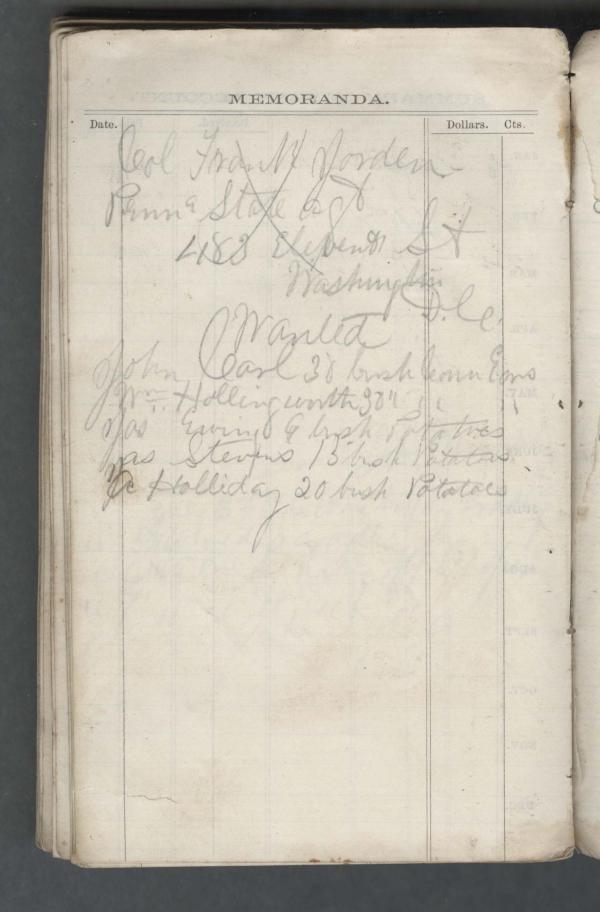 MEMORANDA.
Date. Dollars. Cts.
Col Frank Jorden
Penna State agt
483 Eleventh St
Washington
D.C.
Wanted
John Carl 30 bush Corn Ears
Wm Hollingworth 30 " " "
Jas Ewing 9 bush Potatoes
Jas Stevens 15 bush Potatoes
Holliday 20 bush Potatoes